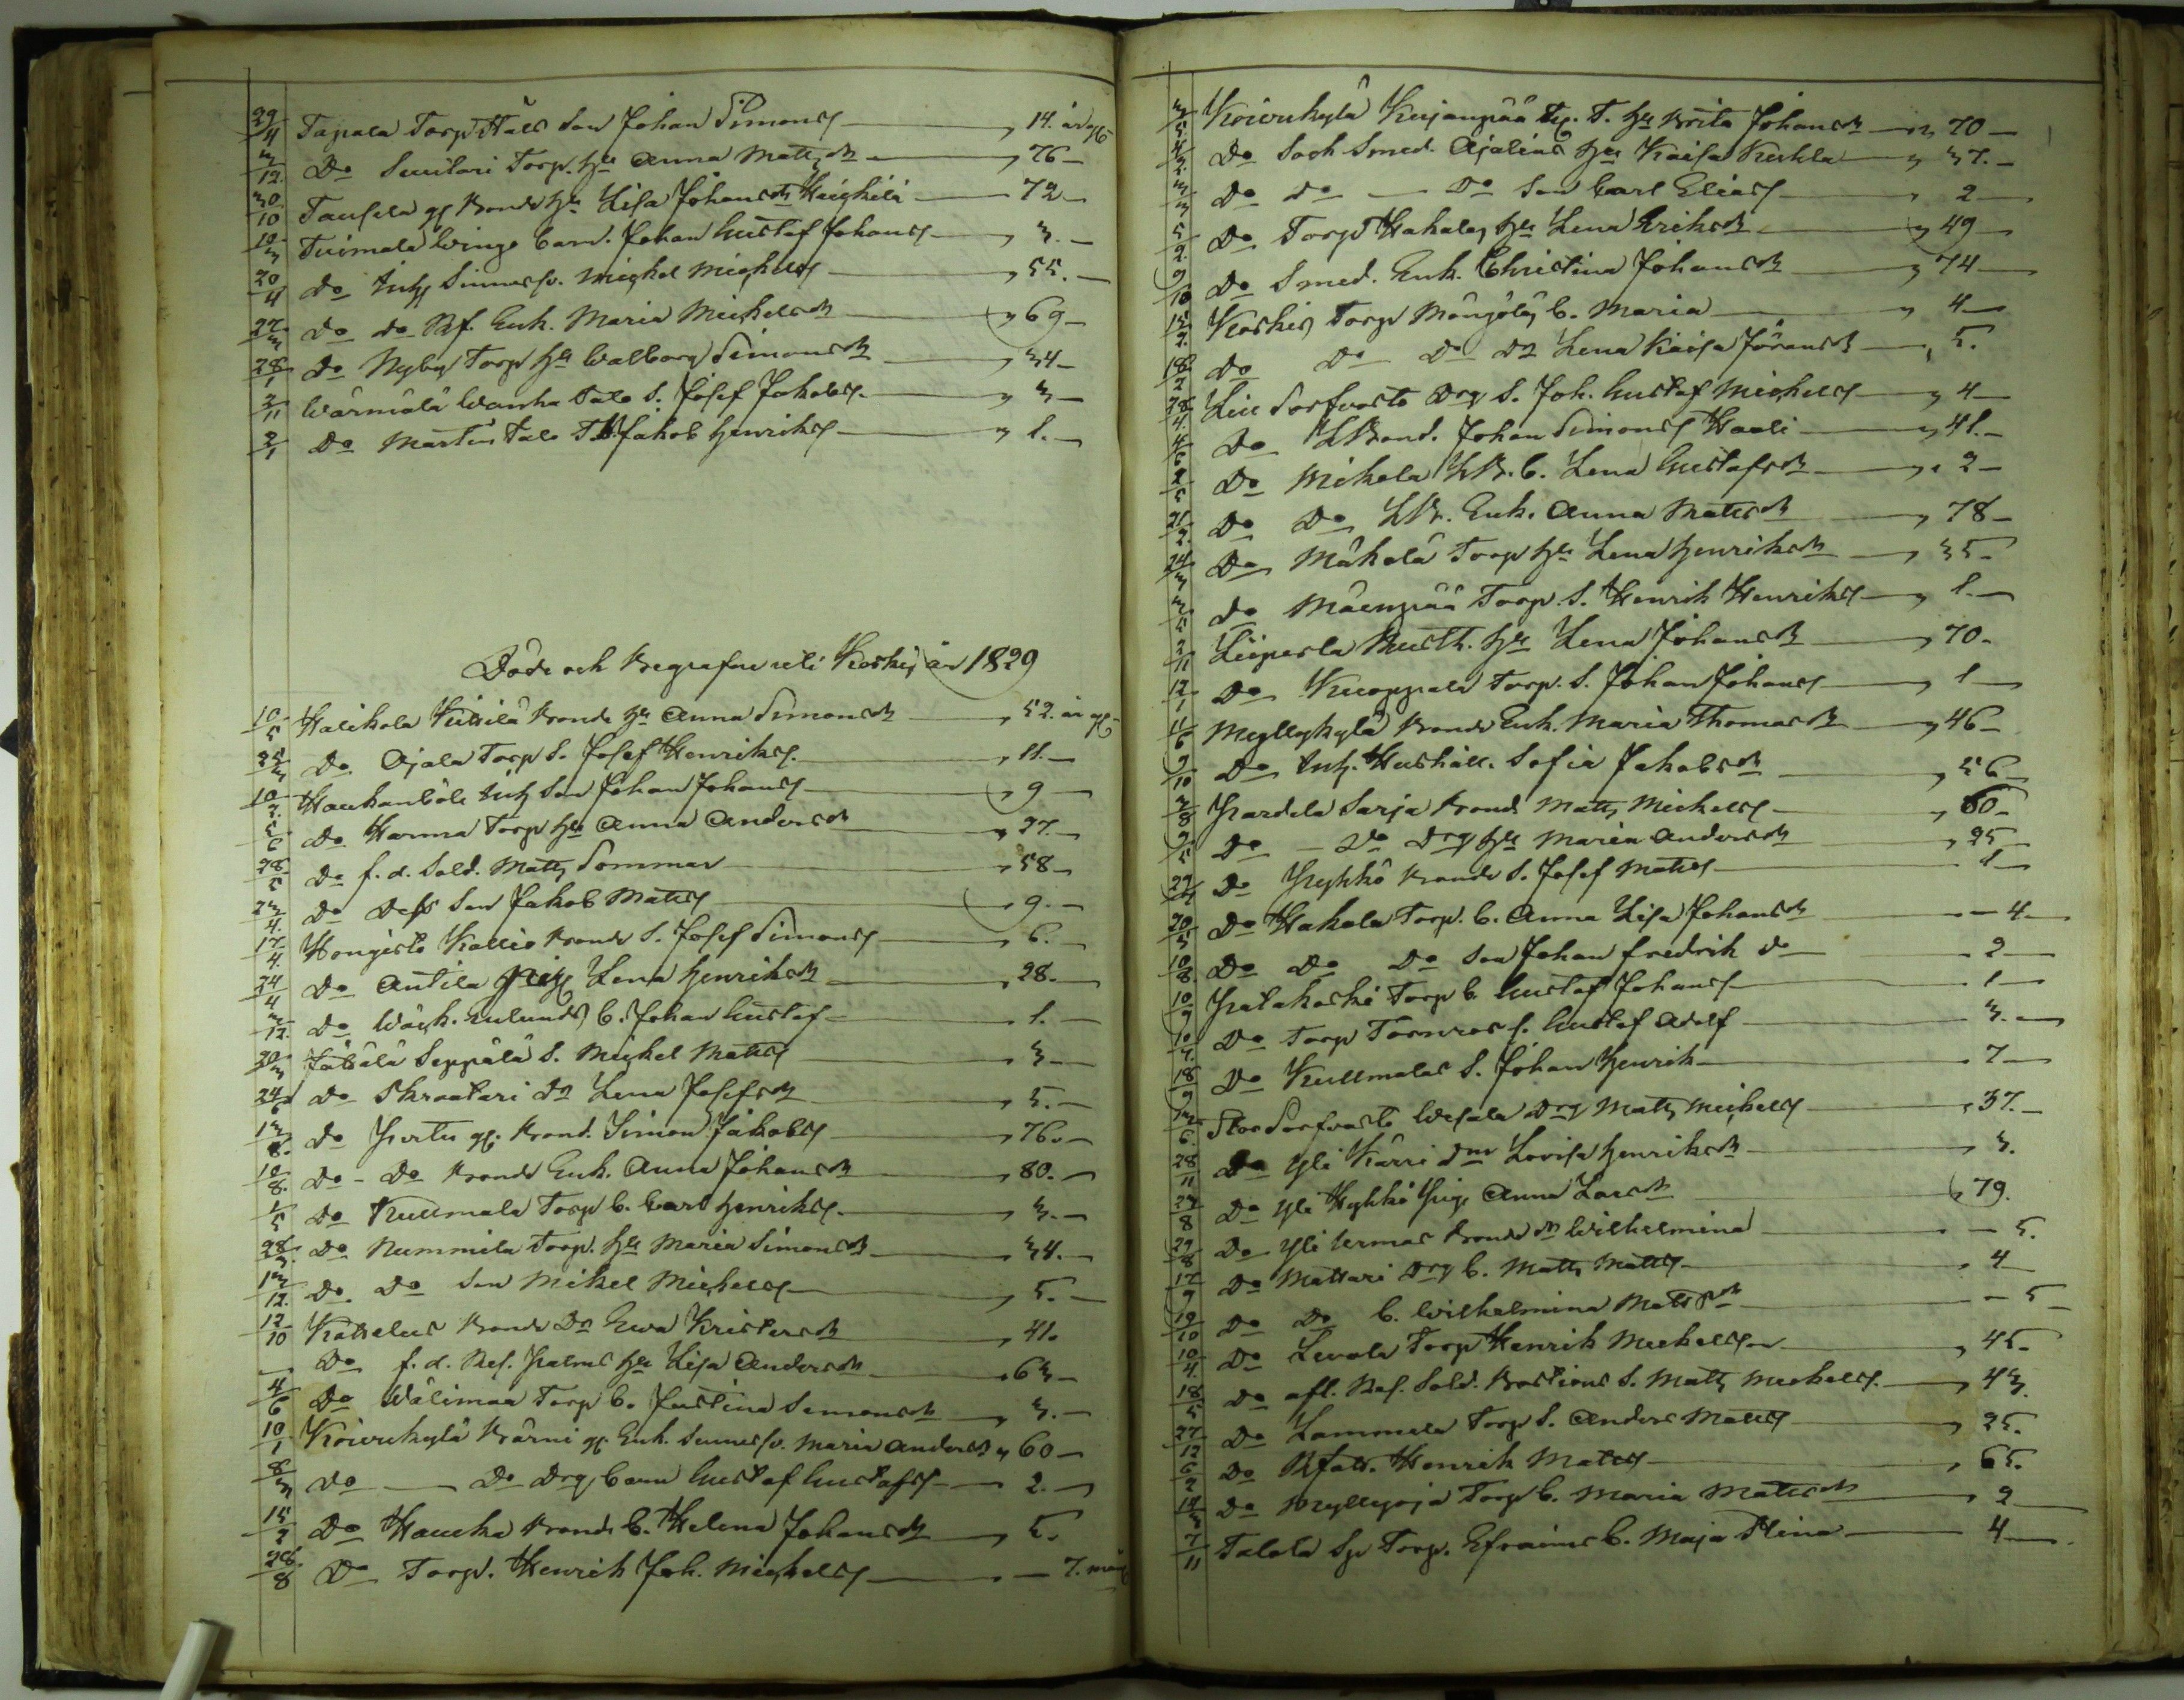 29/4 Tapala Torp Hals Son Johan Simons 14. år gl
3/12. Do Suutari Torp. Hu Anna Matts dr 76
30./10 Taufila gl Bonde Hu Lisa Johans dr 72
19/3 Tuimala barn. Johan Gustaf Johans 3.
20/4 Do Inh. Michel Michels 55.
27./3 Do do Enk. Maria Michels dr 69
28/1 Do Nyby Torp Hu Walborg Simons dr 34
2/11 Wärmälä Wanha Talo S. Josef Jakobs. 3
2/1 Do Martin Talo Jakob Henriks 1.
Döde och Begrafne uti Koskis år 1829
10/5 Halikola Bonde Hu Anna Simons dr 52. år gl
22/3 Do Ajala Torp S. Josef Henriks. 11.
10/2. Haukanböle Inh Son Johan Johans 9
5/6 Do Harma Torp Hu Anna Anders dr 27.
28/5 Do f. d. Sold. Matts Sommar 58
23/4. Do Dess Son Jakob Matts 9.
17/4. Hongisto Kallio Bonde S. Josef Simons 6.
24/4 Do Antila Lena Henriks dr 28.
3/12. Do b. Johan Gustaf 1.
30/3 Seppälä S. Michel Matts 3
24/6 Do Skraatari Dr Lena Josefs dr 5.
13/8. Do gl. Bond. Simon Jakobs 76.
10/8. Do Do Bonde Enk. Anna Johans dr 80.
1/5 Do Kullmala Torp b. Carl Henriks. 3.
28/3. Do Nummila Torp. Hu Maria Simons dr 34.
13/12. Do Do Son Mikel Michels 5.
12/10 Kattelus Bonde Dr Ewa Kristers dr 41.
Do f. d. Hu Lisa Anders dr 63
4/6 Do Wälimaa Torp b. Justina Simons dr 3.
10/1 Koivukylä Kärni gl. Enk. Maria Anders dr 60
8/3 Do Do Drg barn Gustaf Gustafs 2.
15/2 Do Hauka Bonde b. Helena Johans dr 5.
28./8 Do Torp. Henrik Joh. Michels 7. mån
3/5 Koivukylä Kujanpää T. Hu Brita Johans dr 70
4/2. Do Sock Smed. Ajalins Hu Kaisa 37.
3/3 Do do Do Son Carl Elias 2
5/2. Do Torp Hakala Hu Lena Eriks dr 49
9/10 Do Smed. Enk. Christina Johans dr 74
15/2. Koskis Torp b. Maria 4
18/2 Do Do Do Dr Lena Kaisa Jörans dr 5.
28/4. Liu Sorfvasto Drg S. Joh. Gustaf Michels 4
4/6 Do Bond. Johan Simons Haali 41.
2/5 Do Mikola b. Lena Gustafs dr 2
21/2. Do Do Enk. Anna Matts dr 78
24/3 Do Mäkelä Torp Hu Lena Henriks dr 35
3/5 Do Mäenpää Torp. S. Henrik Henriks 1.
2/11 Liipola Rusth. Hu Lena Johans dr 70.
12/1 Do Kuoppala Torp. S. Johan Johans 1
11/6 Myllykylä Bonde Enk. Maria Thomas dr 46
9/10 Do Inh. Hushåll. Sofia Jakobs dr 56
2/8 Pardela Sarja Bond Matts Michels 80
9/5 Do Do Drg Hu Maria Anders dr 25
29/4 Do Pykkö Bonde S. Josef Matts 1
20/5 Do Hakala Torp. b. Anna Lisa Johans dr 4.
10/8. Do Do Do Son Johan Fredrik Do 2
10/9 Patakoski Torp b. Gustaf Johans 1
10/7. Do Torp Törnros S. Gustaf Adolf 3.
18/9 Do Kullmalas S. Johan Henrik 7
13/6. Stor Sorfvasto Wesala Drg Matts Michels 37.
28/11 Do Yli Kärri Lovisa Henriks dr 3.
24/8 Do Yli Hykkö Pig. Anna Lars dr 79.
29/8 Do Yli Urmas Bonde Wilhelmina 5.
17/9 Do Mattari Drg b. Matts Matts 4
19/10 Do Do b. Wilhelmina Matts dr 5
10/4. Do Levola Torp Henrik Michelsson 45.
18/5 Do afl. Ref. Sold. S. Matts Michels. 43.
27/12 Do Lammela Torp S. Anders Matts 25.
6/2 Do Henrik Matts 65.
14/3 Do Myllyoja Torp b. Maria Matts dr 2
7/11 Talola Sp Torp. Efraims b. Maja Stina 4